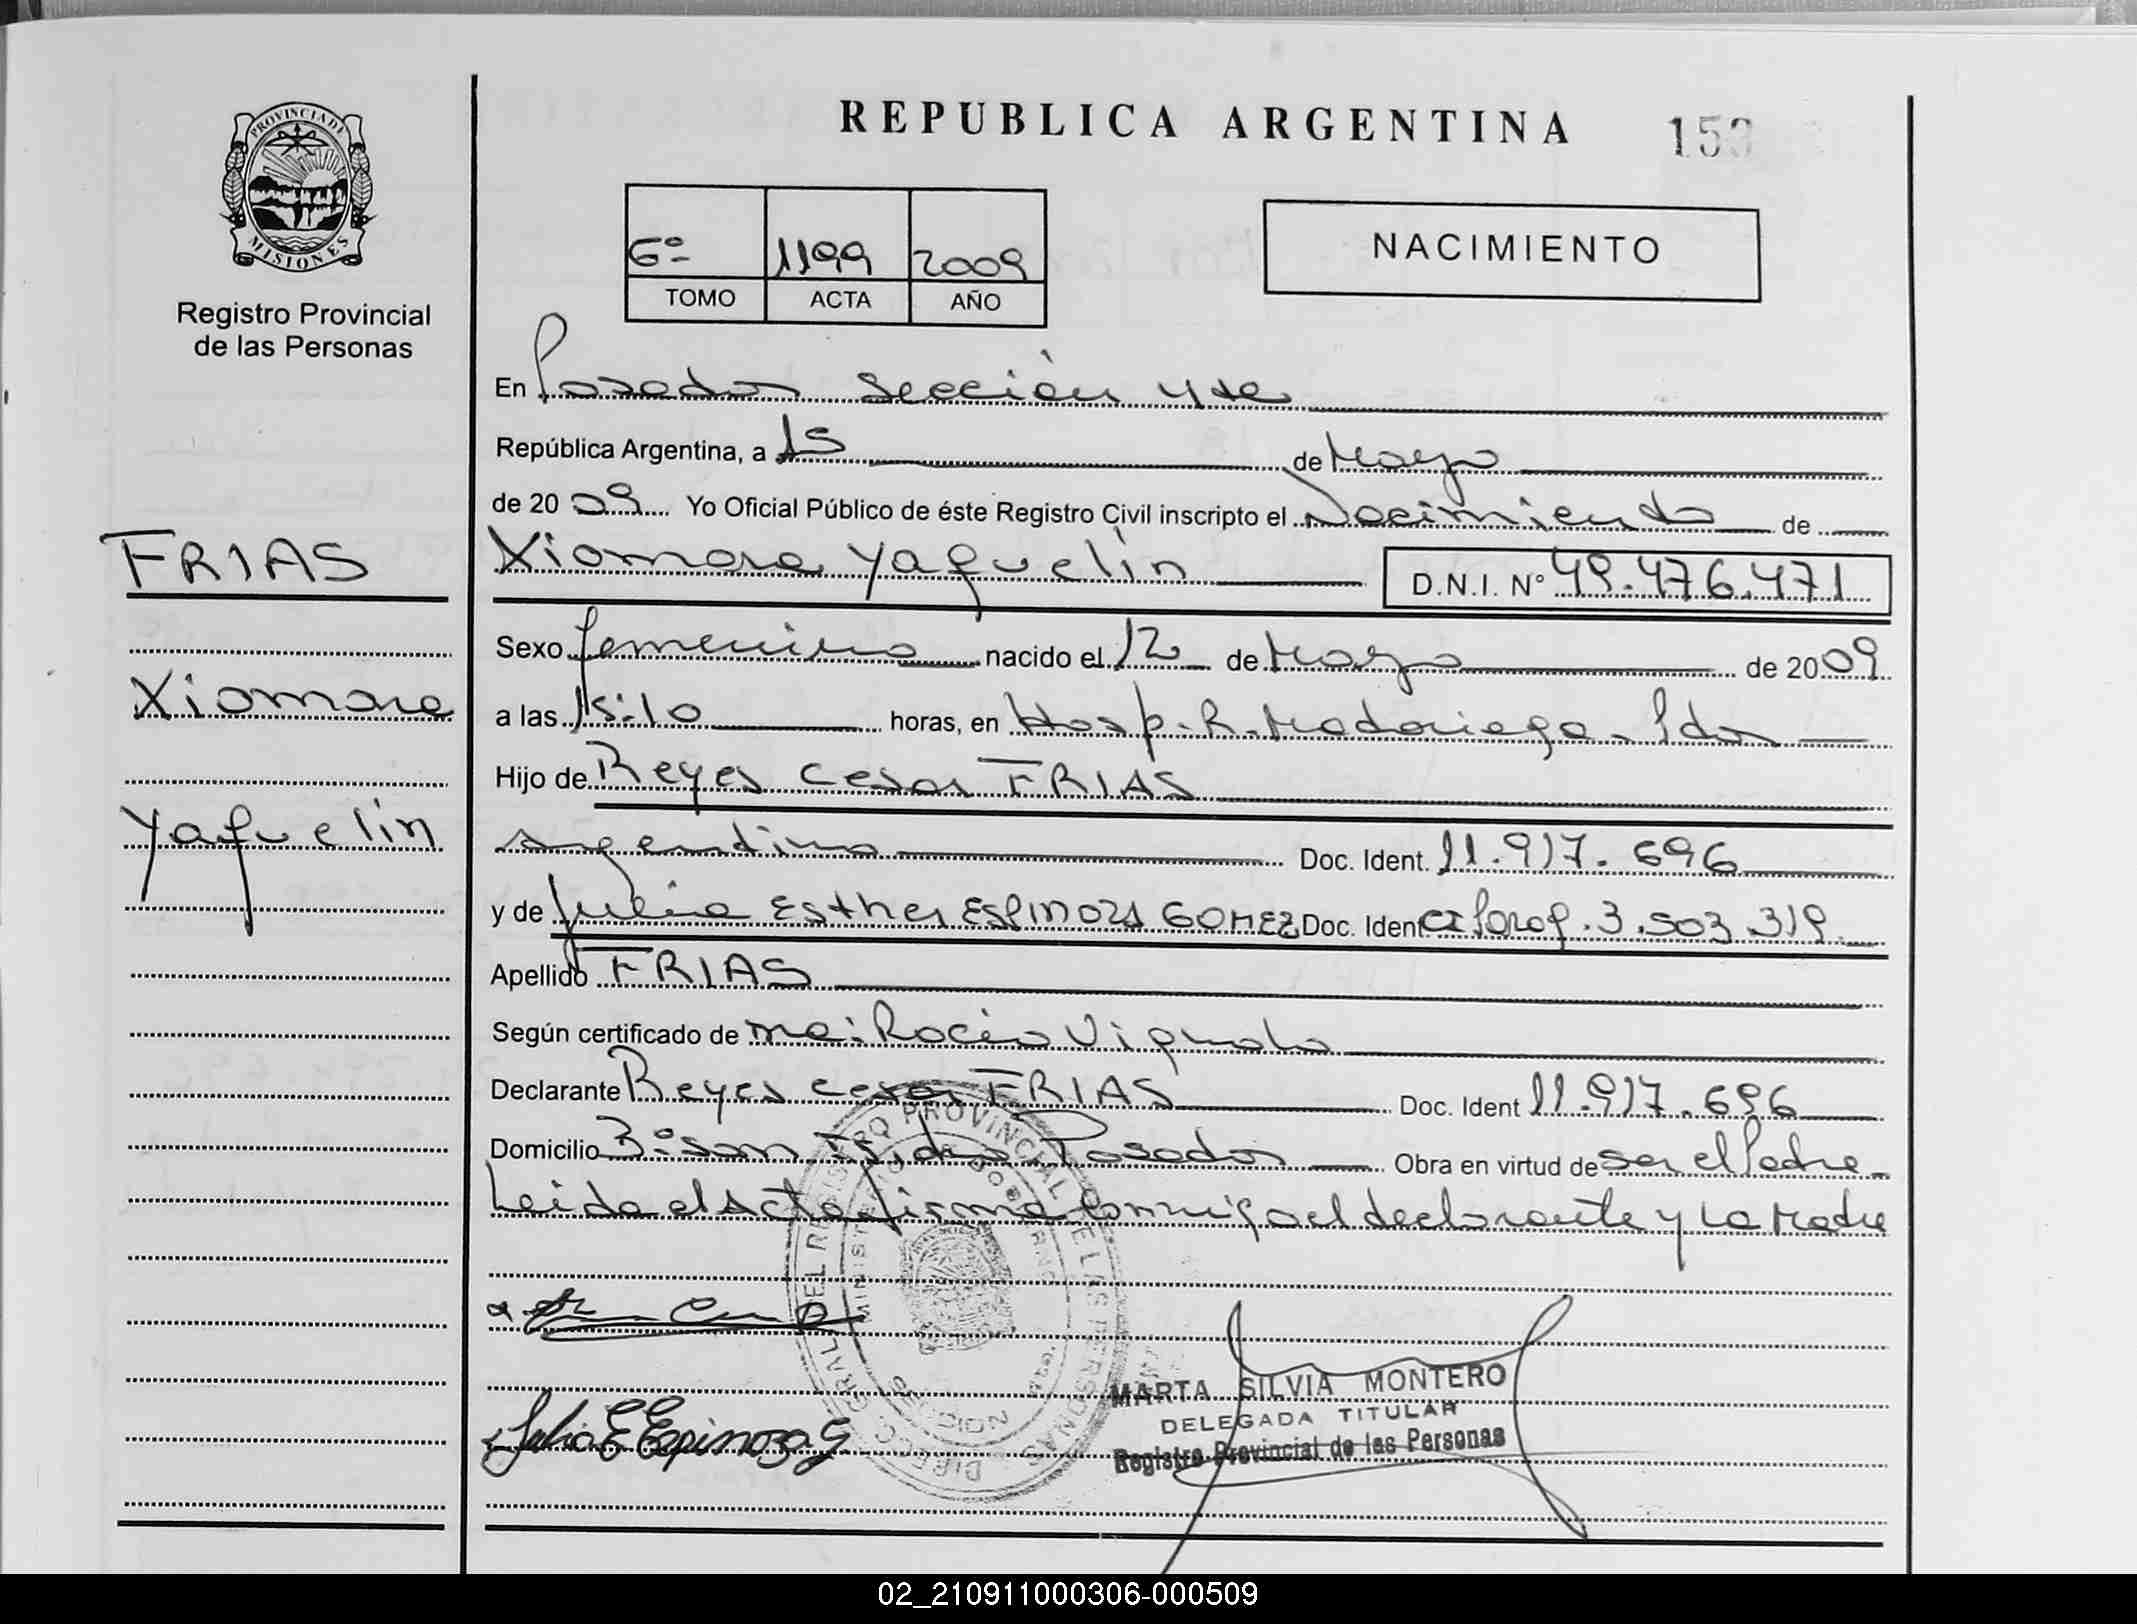 REPUBLICA ARGENTINA
PROVINCIA DE MISIONES
Registro Provincial
de las Personas
6º 1199 2009
TOMO ACTA AÑO
NACIMIENTO
En Posadas Sección 4ta
República Argentina, a 15 de Mayo
de 2009 Yo Oficial Público de éste Registro Civil inscripto el Nacimiento de
Xiomara Yaquelin D.N.I. Nº 49.476.471
FRIAS
Xiomara
Yaquelin
Sexo femenino nacido el 12 de Mayo de 2009
a las 15:10 horas, en Hosp. R. Madariaga - Pdas
Hijo de Reyes Cesar FRIAS
Argentino Doc. Ident. 11.917.696
y de Julia Esther ESPINOZA GOMEZ Doc. Ident CI Parag. 3.503.319
Apellido FRIAS
Según certificado de Rocío Vignolo
Declarante Reyes Cesar FRIAS Doc. Ident 11.917.696
Domicilio Bº San Isidro Posadas Obra en virtud de ser el Padre
Leída el Acta firma conmigo el declarante y la Madre
Julia E Espinoza G
MARTA SILVIA MONTERO
DELEGADA TITULAR
Registro Provincial de las Personas
02_210911000306-000509